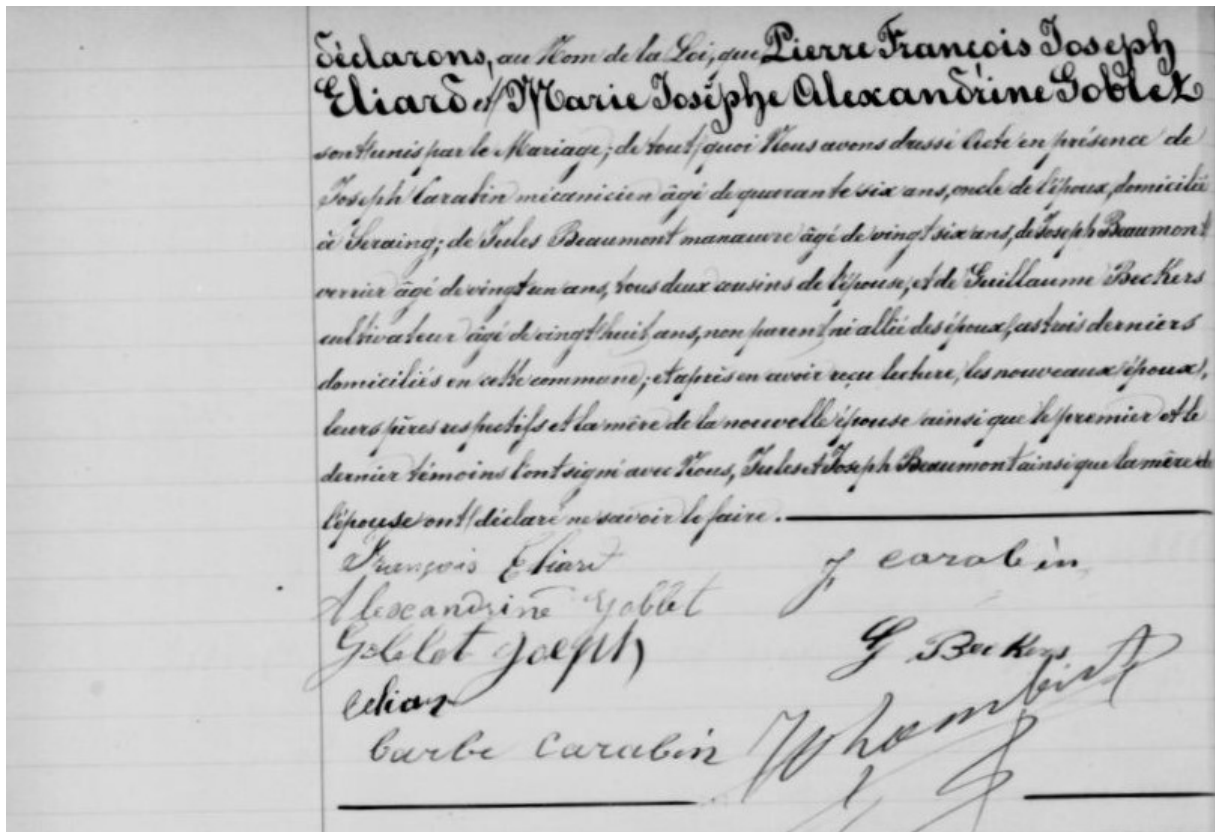 déclarons, au Nom de la Loi, que Pierre François Joseph
Eliard et Marie Josèphe Alexandrine Goblet
sont unis par le Mariage; de tout quoi Nous avons dressé Acte en présence de
Joseph Carabin mécanicien âgé de quarante six ans, oncle de l'époux, domicilié
à Seraing; de Jules Beaumont manœuvre âgé de vingt six ans, de Joseph Beaumont
verrier âgé de vingt un ans, tous deux cousins de l'épouse, et de Guillaume Beckers
cultivateur âgé de vingt huit ans, non parent ni allié des époux, les trois derniers
domiciliés en cette commune; et après en avoir reçu lecture, les nouveaux époux,
leurs pères respectifs et la mère de la nouvelle épouse ainsi que le premier et le
dernier témoins l'ont signé avec Nous, Jules et Joseph Beaumont ainsi que la mère de
l'épouse ont déclaré ne savoir le faire.
François Eliard
J Carabin
Alexandrine Goblet
Goblet Joseph
G Beckers
Eliar
barbe Carabin